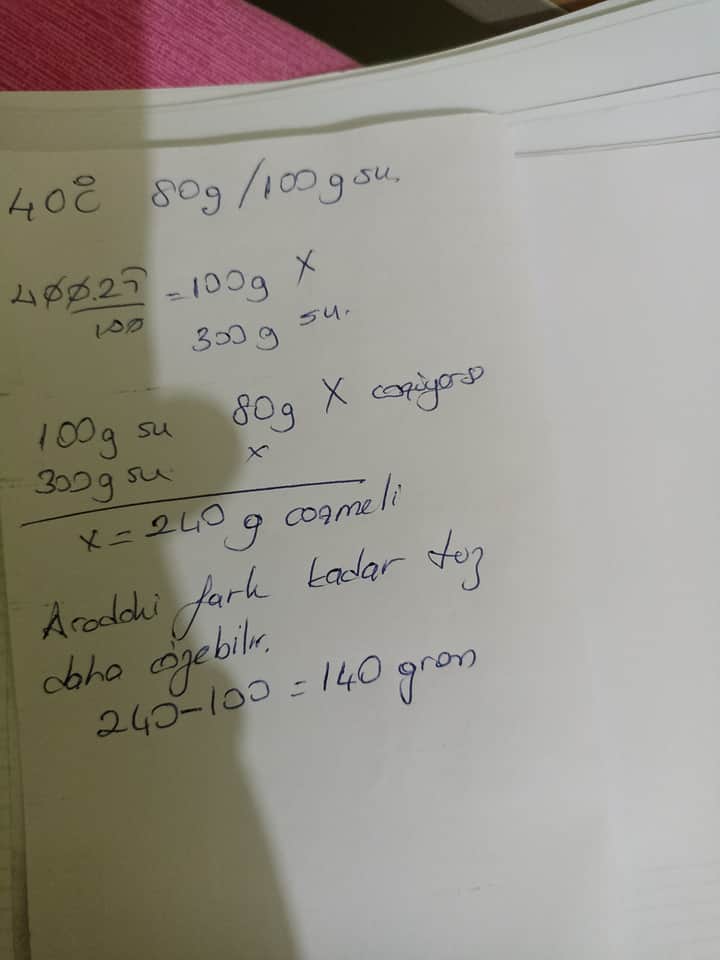 40°C 80g/100g su.
400.25 = 100g X
100 300g su.
100g su 80g X çözüyorsa
300g su x
x = 240 g çözmeli
Aradaki fark kadar tuz
daha çözebilir.
240-100 = 140 gram